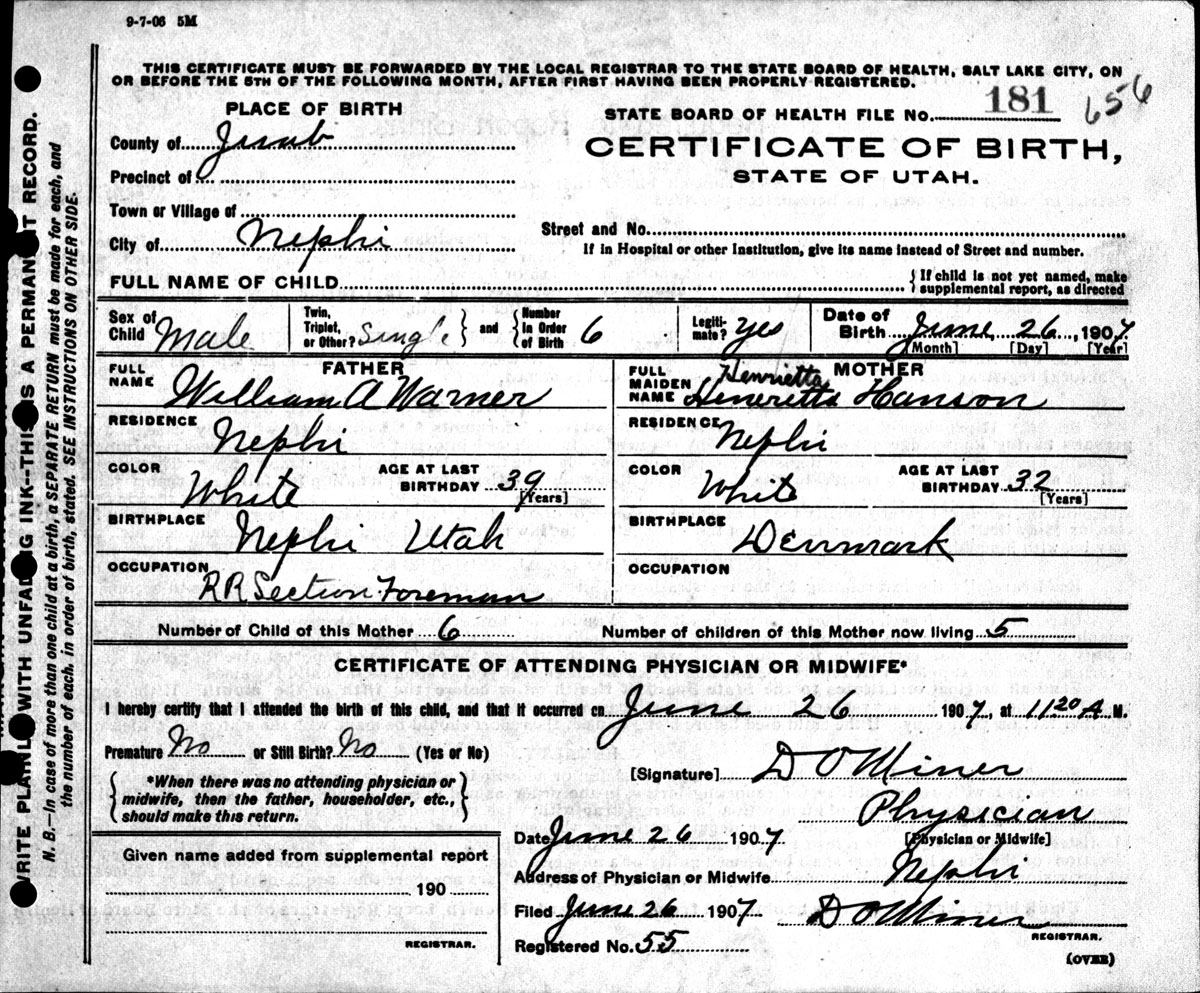 9-7-06 5M
THIS CERTIFICATE MUST BE FORWARDED BY THE LOCAL REGISTRAR TO THE STATE BOARD OF HEALTH, SALT LAKE CITY, ON
OR BEFORE THE 5TH OF THE FOLLOWING MONTH, AFTER FIRST HAVING BEEN PROPERLY REGISTERED.
PLACE OF BIRTH
STATE BOARD OF HEALTH FILE NO. 181 656
County of Juab
CERTIFICATE OF BIRTH,
STATE OF UTAH.
Precinct of
Town or Village of
City of Nephi
Street and No.
If in Hospital or other Institution, give its name instead of Street and number.
FULL NAME OF CHILD
{ If child is not yet named, make
supplemental report, as directed
Sex of Child Male
Twin, Triplet, or Other? Single } and { Number in Order of Birth 6
Legitimate? yes
Date of Birth June 26, 1907
[Month] [Day] [Year]
FATHER
FULL NAME William A Warner
MOTHER
FULL MAIDEN NAME Henrietta Henerietta Hanson
RESIDENCE Nephi
RESIDENCE Nephi
COLOR White AGE AT LAST BIRTHDAY 39 [Years]
COLOR White AGE AT LAST BIRTHDAY 32 [Years]
BIRTHPLACE Nephi Utah
BIRTHPLACE Denmark
OCCUPATION RR Section Foreman
OCCUPATION
Number of Child of this Mother 6 Number of children of this Mother now living 5
CERTIFICATE OF ATTENDING PHYSICIAN OR MIDWIFE*
I hereby certify that I attended the birth of this child, and that it occurred on June 26 1907, at 11 20 A M.
Premature No or Still Birth? No (Yes or No)
{ *When there was no attending physician or
midwife, then the father, householder, etc.,
should make this return. }
[Signature] D O Miner
Physician
[Physician or Midwife]
Date June 26 1907
Given name added from supplemental report
190
REGISTRAR.
Address of Physician or Midwife Nephi
Filed June 26 1907 D O Miner
REGISTRAR.
Registered No. 55
(OVER)
WRITE PLAINLY WITH UNFADING INK—THIS IS A PERMANENT RECORD.
N. B.—In case of more than one child at a birth, a SEPARATE RETURN must be made for each, and
the number of each, in order of birth, stated. SEE INSTRUCTIONS ON OTHER SIDE.